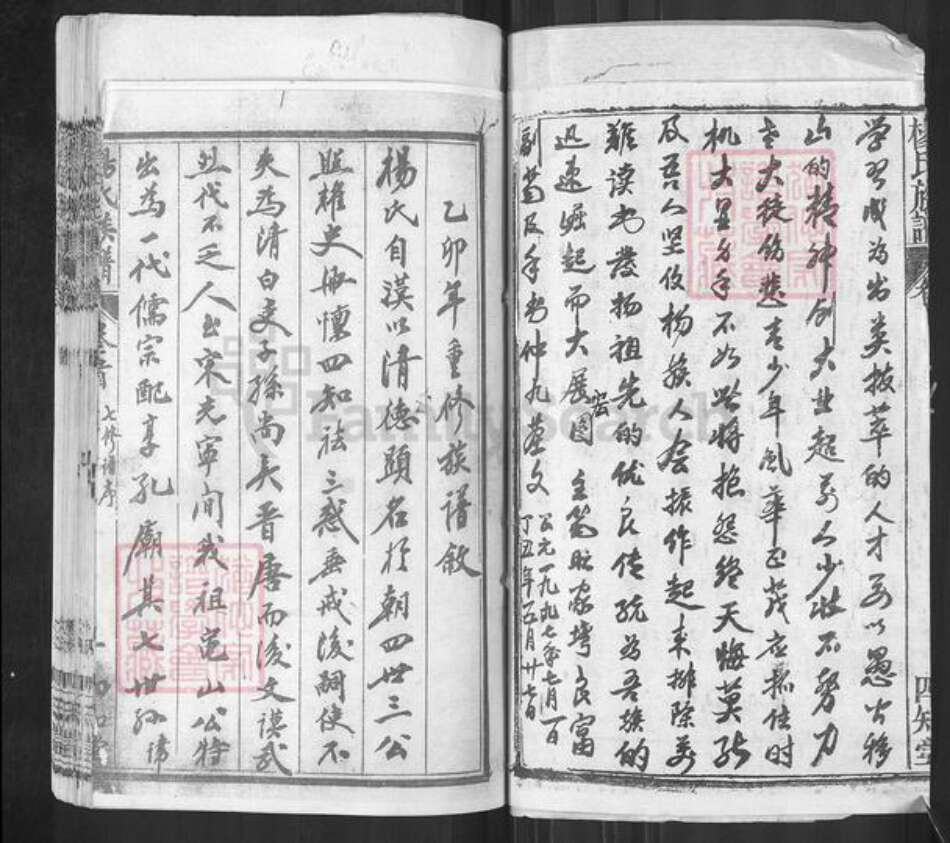 楊氏族譜
四知堂
学習成为出类拔萃的人才要以愚公移
山的精神创大业超前人少壮不努力
老大徒伤悲青少年风华正茂应抓住时
机大显身手不如此将抱怨终天悔莫及
及吾人坚信杨族人会振作起来排除万
难读书發扬祖先的优良传统为吾族的
迅速崛起而大展宏图 主笔 良富
副笔及手书仲九蓝文
公元一九九七年七月一日
丁丑年五月廿七日
乙卯年重修族譜敘
楊氏自漢以清德顕名於朝四世三公
照耀史冊懍四知祛三惑垂戒後嗣使不
失為清白吏子孫尚矣晋唐而後文謨武
烈代不乏人出宋元寧間我祖龜山公特
出為一代儒宗配享孔廟其七世孫諱
楊氏族譜
卷首
七修譜序
四知堂
FamilySearch